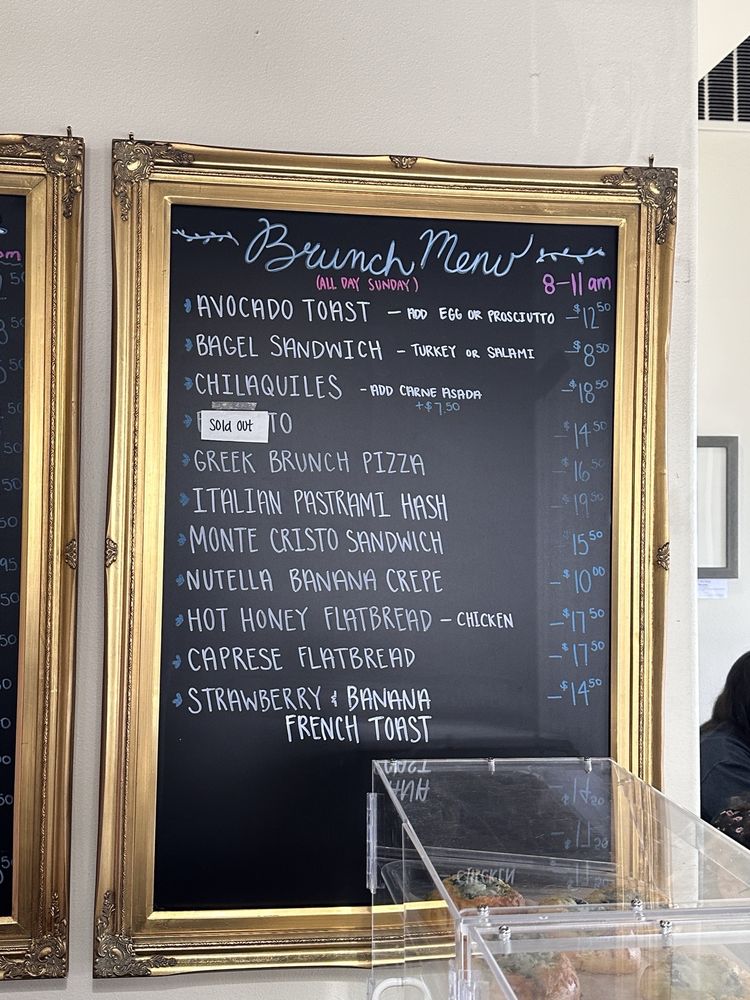 Brunch Menu
(ALL DAY SUNDAY) 8-11 am
AVOCADO TOAST - ADD EGG OR PROSCIUTTO - $12.50
BAGEL SANDWICH - TURKEY OR SALAMI - $8.50
CHILAQUILES - ADD CARNE ASADA - $18.50
+$7.50
Sold out TO - $14.50
GREEK BRUNCH PIZZA - $16.50
ITALIAN PASTRAMI HASH - $19.50
MONTE CRISTO SANDWICH - $15.50
NUTELLA BANANA CREPE - $10.00
HOT HONEY FLATBREAD - CHICKEN - $17.50
CAPRESE FLATBREAD - $17.50
STRAWBERRY & BANANA - $14.50
FRENCH TOAST